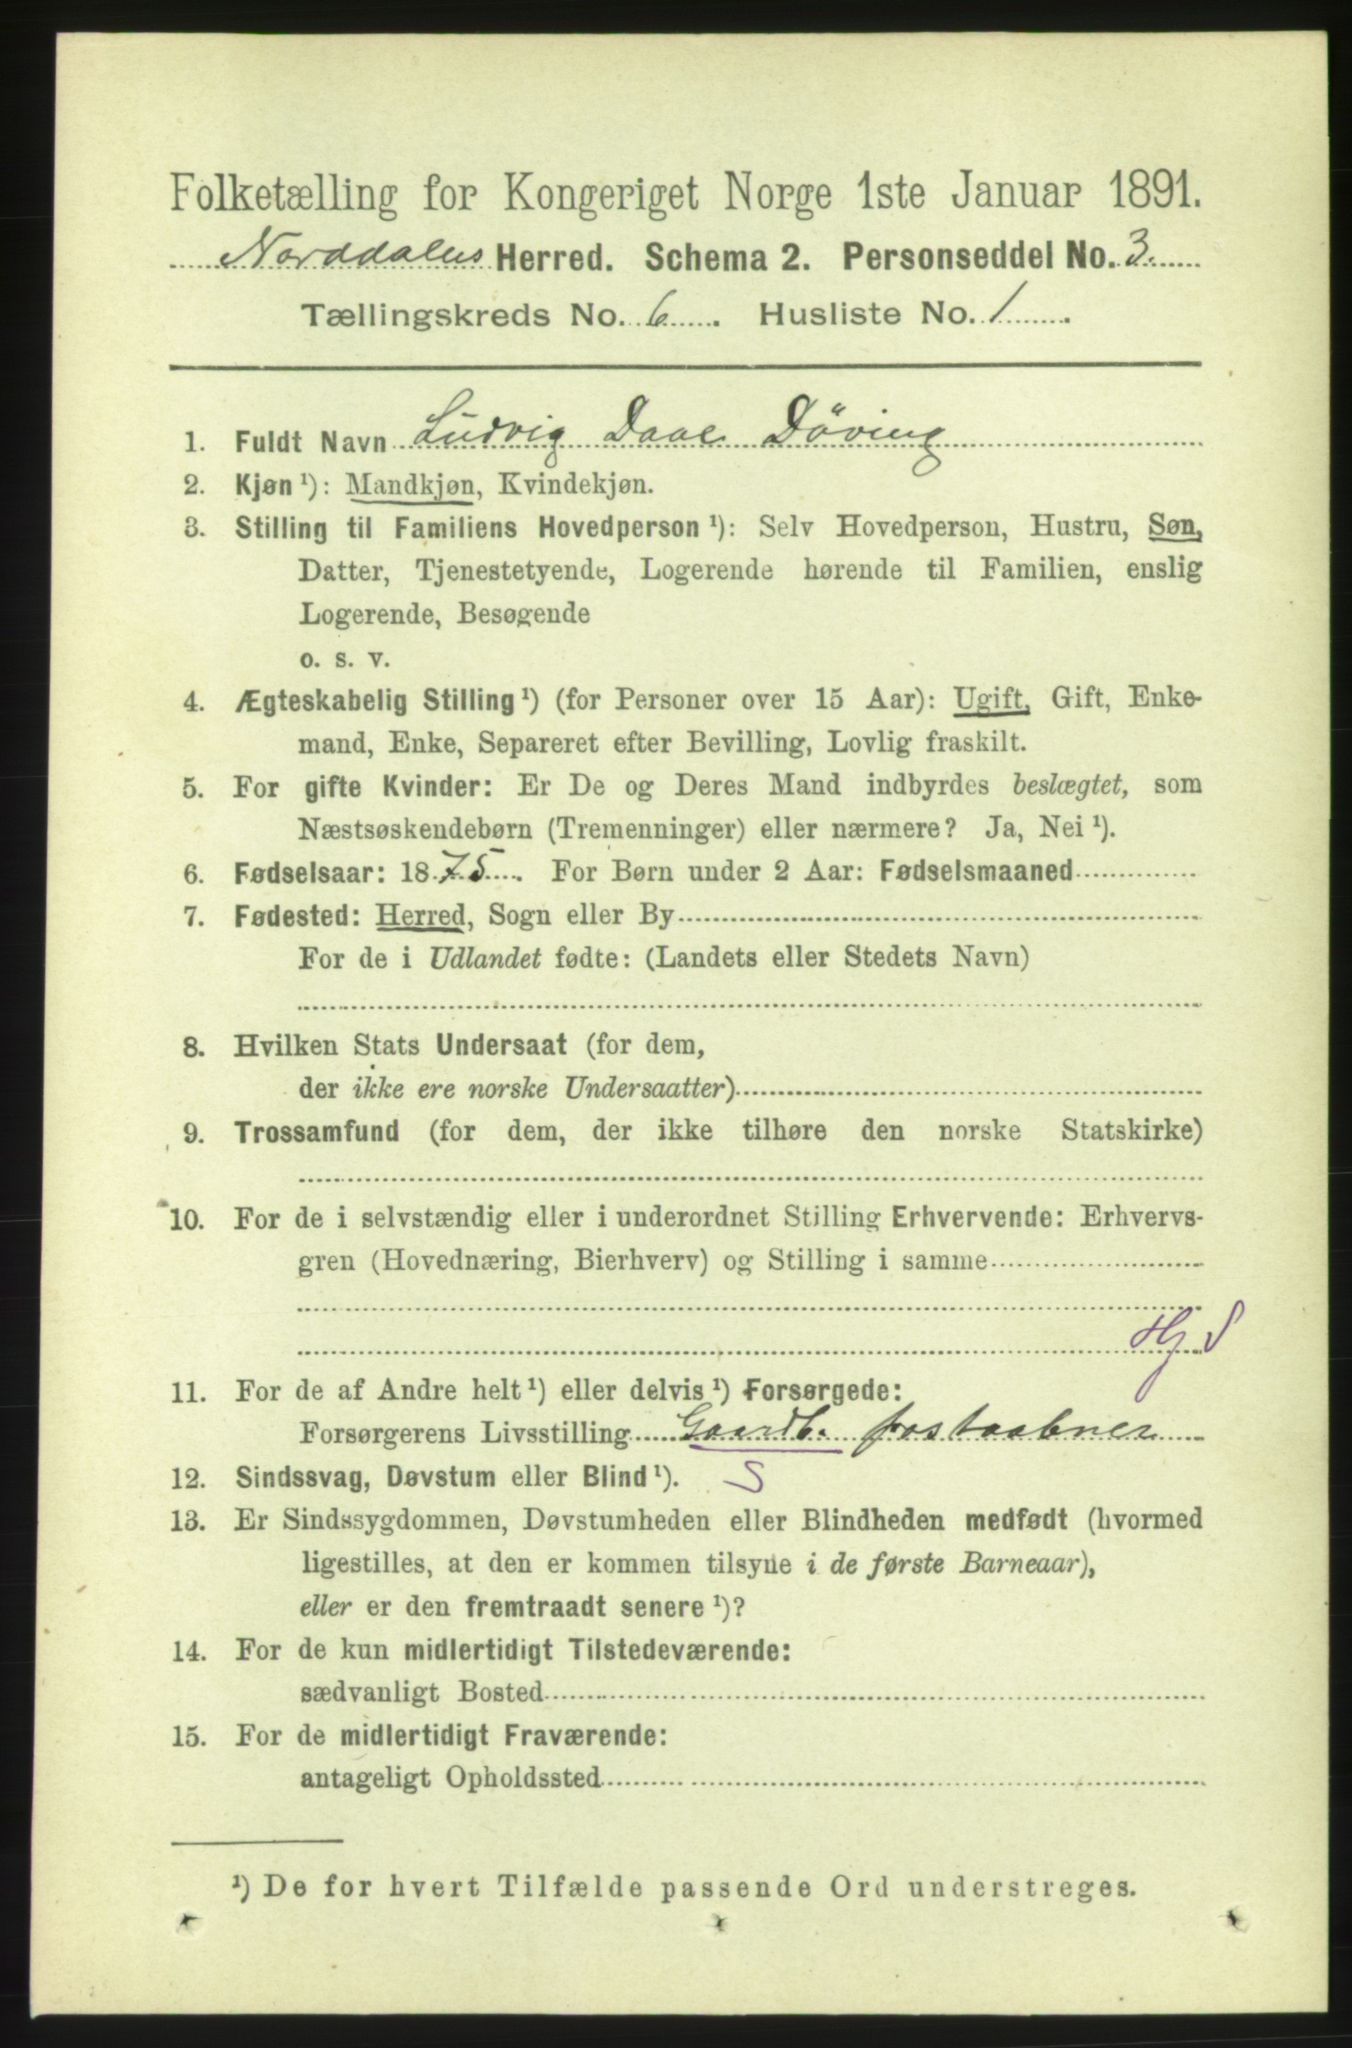 Folketælling for Kongeriget Norge 1ste Januar 1891.
Norddalens Herred. Schema 2. Personseddel No. 3.
Tællingskreds No. 6. Husliste No. 1.
1. Fuldt Navn Ludvig Daae Döving
2. Kjøn ¹): Mandkjøn, Kvindekjøn.
3. Stilling til Familiens Hovedperson ¹): Selv Hovedperson, Hustru, Søn,
Datter, Tjenestetyende, Logerende hørende til Familien, enslig
Logerende, Besøgende
o. s. v.
4. Ægteskabelig Stilling ¹) (for Personer over 15 Aar): Ugift, Gift, Enke-
mand, Enke, Separeret efter Bevilling, Lovlig fraskilt.
5. For gifte Kvinder: Er De og Deres Mand indbyrdes beslægtet, som
Næstsøskendebørn (Tremenninger) eller nærmere? Ja, Nei ¹).
6. Fødselsaar: 1875. For Børn under 2 Aar: Fødselsmaaned
7. Fødested: Herred, Sogn eller By
For de i Udlandet fødte: (Landets eller Stedets Navn)
8. Hvilken Stats Undersaat (for dem,
der ikke ere norske Undersaatter)
9. Trossamfund (for dem, der ikke tilhøre den norske Statskirke)
10. For de i selvstændig eller i underordnet Stilling Erhvervende: Erhvervs-
gren (Hovednæring, Bierhverv) og Stilling i samme
Hj S
11. For de af Andre helt ¹) eller delvis ¹) Forsørgede:
Forsørgerens Livsstilling Gaardb. postaabner
12. Sindssvag, Døvstum eller Blind ¹). S
13. Er Sindssygdommen, Døvstumheden eller Blindheden medfødt (hvormed
ligestilles, at den er kommen tilsyne i de første Barneaar),
eller er den fremtraadt senere ¹)?
14. For de kun midlertidigt Tilstedeværende:
sædvanligt Bosted
15. For de midlertidigt Fraværende:
antageligt Opholdssted
¹) De for hvert Tilfælde passende Ord understreges.